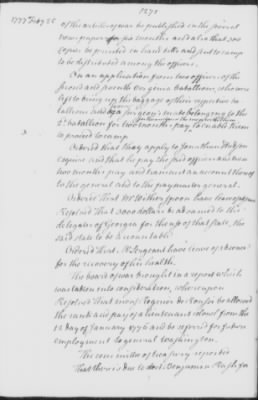 1777 Feby 25
of the articles of war be published in the several
news papers for six months and also that 300
copies be printed in hand bills and sent to camp
to be distributed among the officers.
On an application from two officers of the
second and seventh Virginia battalions, who were
left to bring up the baggage of their respective ba-
ttalions and of a serjeant belonging to the
2d. battalion for two months pay to enable them
to proceed to camp
Ordered that they apply to Jonathan Hudson
esquire and that he pay the said officers and men
two months pay and transmit an account thereof
to the general and to the paymaster general.
Ordered That Mr Witherspoon have leave of absence
Resolved That 3000 dollars be advanced to the
delegates of Georgia for the use of that state, the
said state to be accountable
Ordered That Mr Sergeant have leave of absence
for the recovery of his health.
The board of war brought in a report which
was taken into consideration, whereupon
Resolved That mons. be allowed
the rank and pay of a lieutenant colonel from the
12 day of January 1776 and be referred for future
employment to general Washington.
The committee of treasury reported
That there is due to doct. Benjamin Rush for